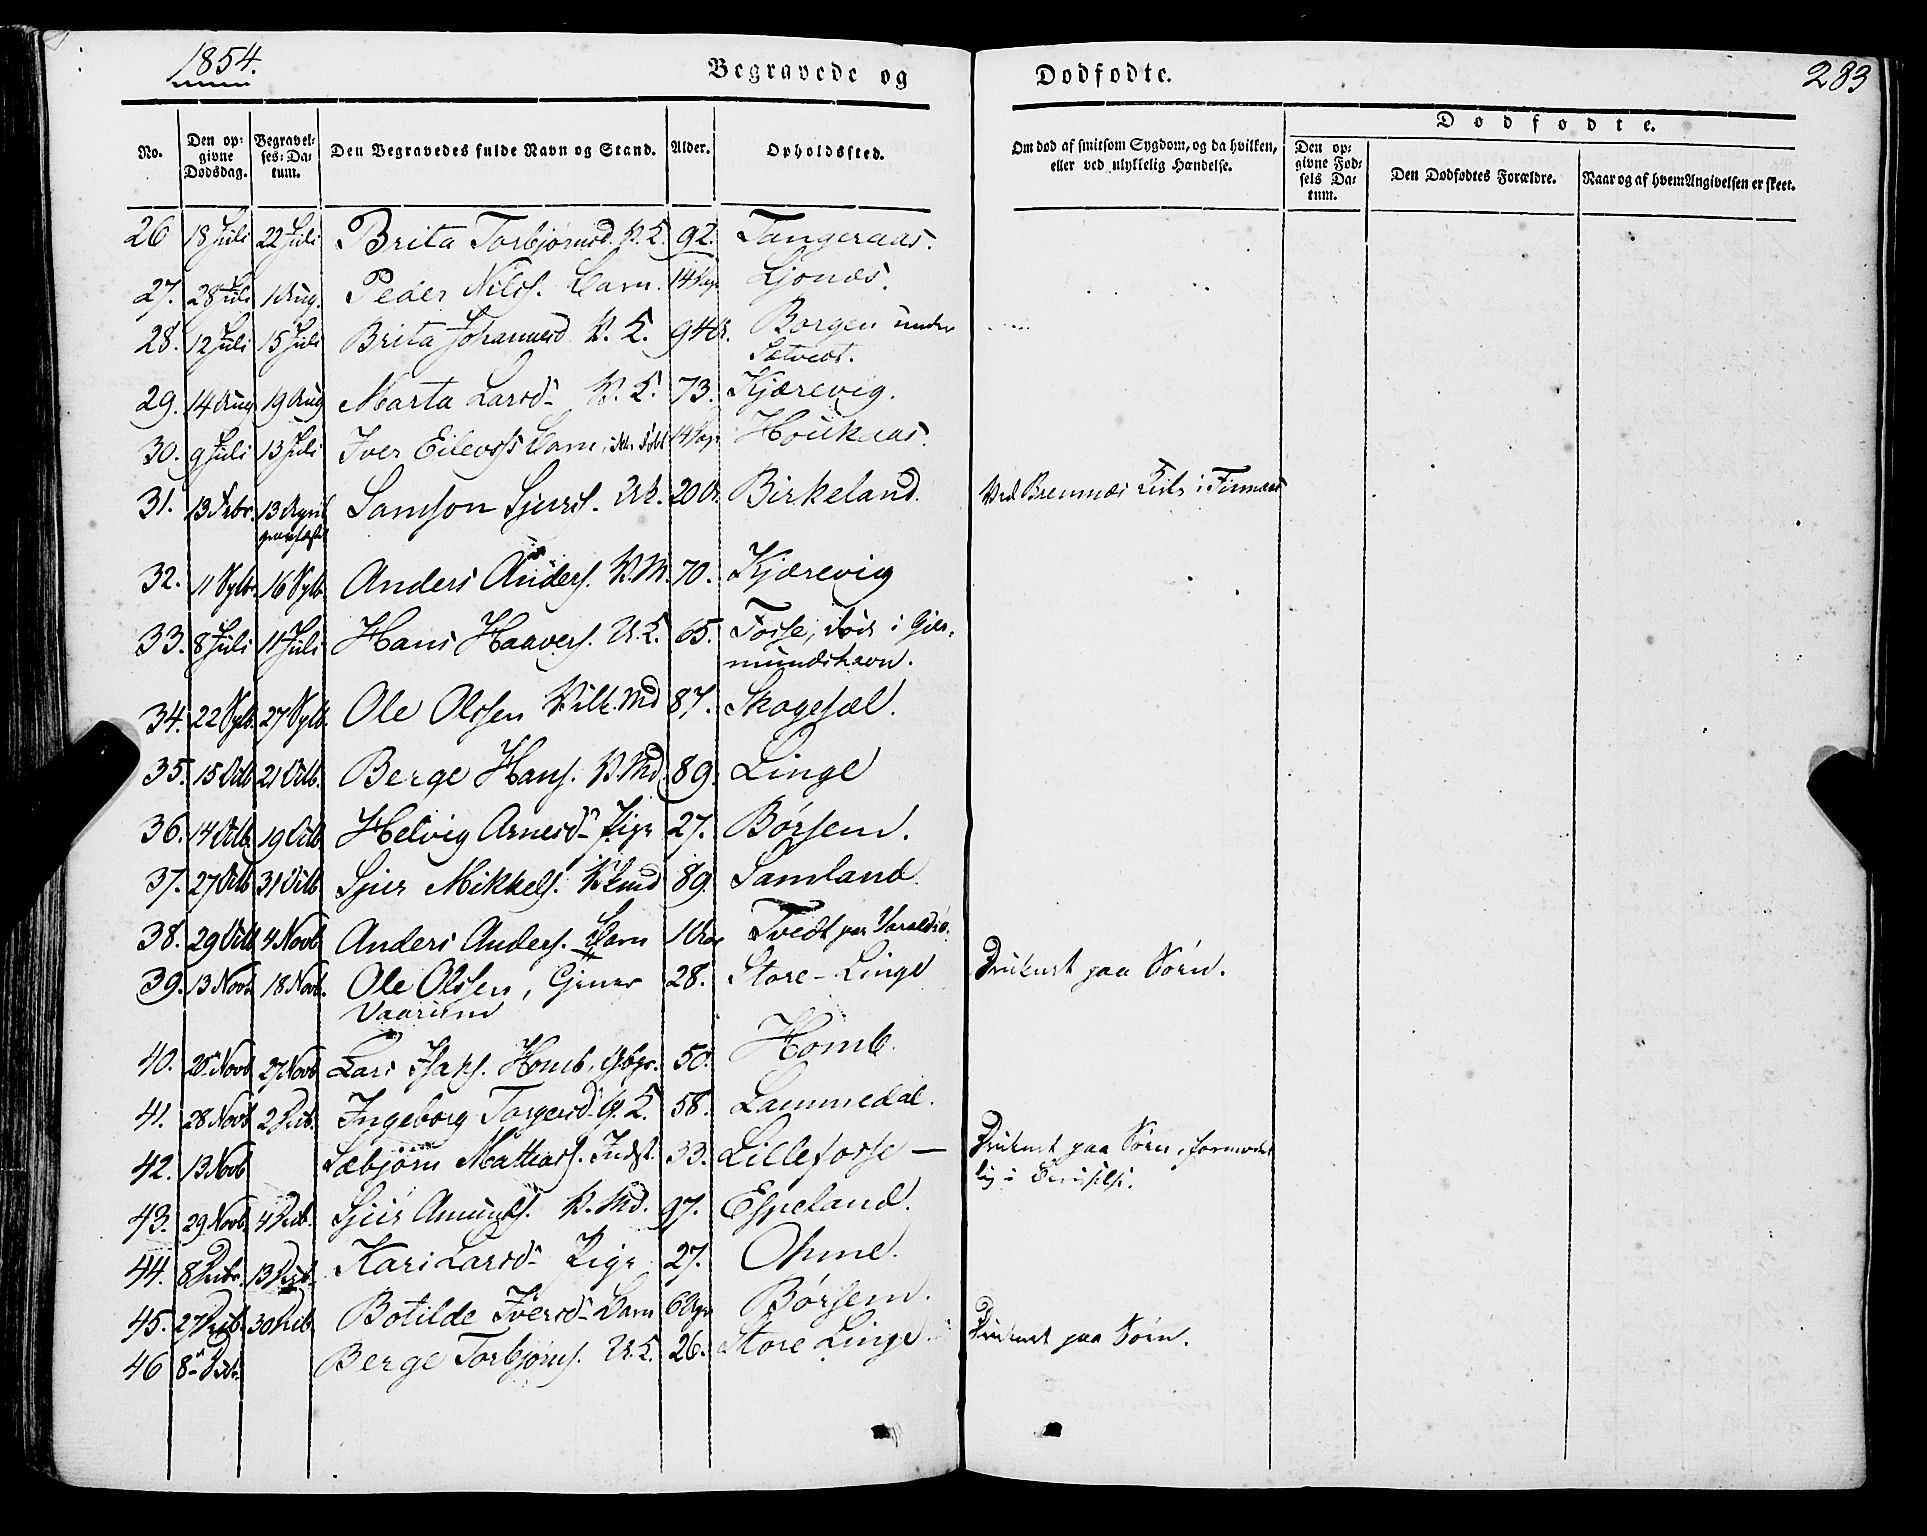 1854.
Begravede og Dødfødte.
283
No. Den opgivne Dødsdag. Begravelses-Datum. Den Begravedes fulde Navn og Stand. Alder. Opholdssted. Om død af smitsom Sygdom, og da hvilken, eller ved ulykkelig Hændelse. Dødfødte. Den opgivne Fødsels Datum. Den Dødfødtes Forældre. Naar og af hvem Angivelsen er skeet.
26 18 Juli 22 Juli Brita Torbjørnsd. K. E. 92. Tangeraas.
27. 28 Juli 1 Aug. Peder Nilss. Barn. 14 Dage Ljonæs.
28. 12 Juli 15 Juli Brita Johannesd K. E. 94 Borgen under
Sætvedt.
29. 14 Aug 19 Aug Marta Larsd- K. E. 73. Kjærevig.
30. 9 Juli 13 Juli Iver Eilevss Barn, ikke døbt 14 Dage Houkaas.
31. 13 Febr. 13 April Samson Sjurss. 20 Birkeland. Ved Bremnæs Kirke i Finnaas
32. 11 Sptb. 16 Sptb Anders Anders. K. M. 70. Kjærevig
33. 8 Juli 11 Juli Hans Haavers. U. E. 65. Fosse, død i Gjer-
mundshavn.
34. 22 Sptb. 27 Sptb. Ole Olssen Md 87. Skogesæl.
35. 15 Octb 21 Octb. Berge Hans. K. Md. 89. Linge
36. 14 Octb 19 Octb Helvig Arnesd- Pige 27. Børsem.
37. 27 Octb 31 Octb Sjur Mikkels. 89. Samland.
38. 29 Octb 4 Novb Anders Anders. Barn Tvedt paa Varaldsø.
39. 13 Novb. 18 Novb. Ole Olssen, 28. Store-Linge Druknet paa Søen.
40. 20 Novb 27 Novb Lars Homb, Gbr. 50. Homb.
41. 28 Novb 2 Decb. Ingeborg Torgersd- G. E. 58. Lammedal.
42. 13 Novb Sæbjørn Mathias. Indst. 33. Lillefosse — Druknet paa Søen, formodet-
lig i
43. 29 Novb. 4 Decb. Sjur Amunds. K. Md. 97. Espeland.
44. 8 Decb. 13 Decb. Kari Larsd- Pige 27. Ohme.
45. 27 Decb. 30 Decb. Botilde Iversd- Barn 6 Børsem.
46 8 Decb. Berge Torbjørns. U. E. 26. Store Linge. Druknet paa Søen.